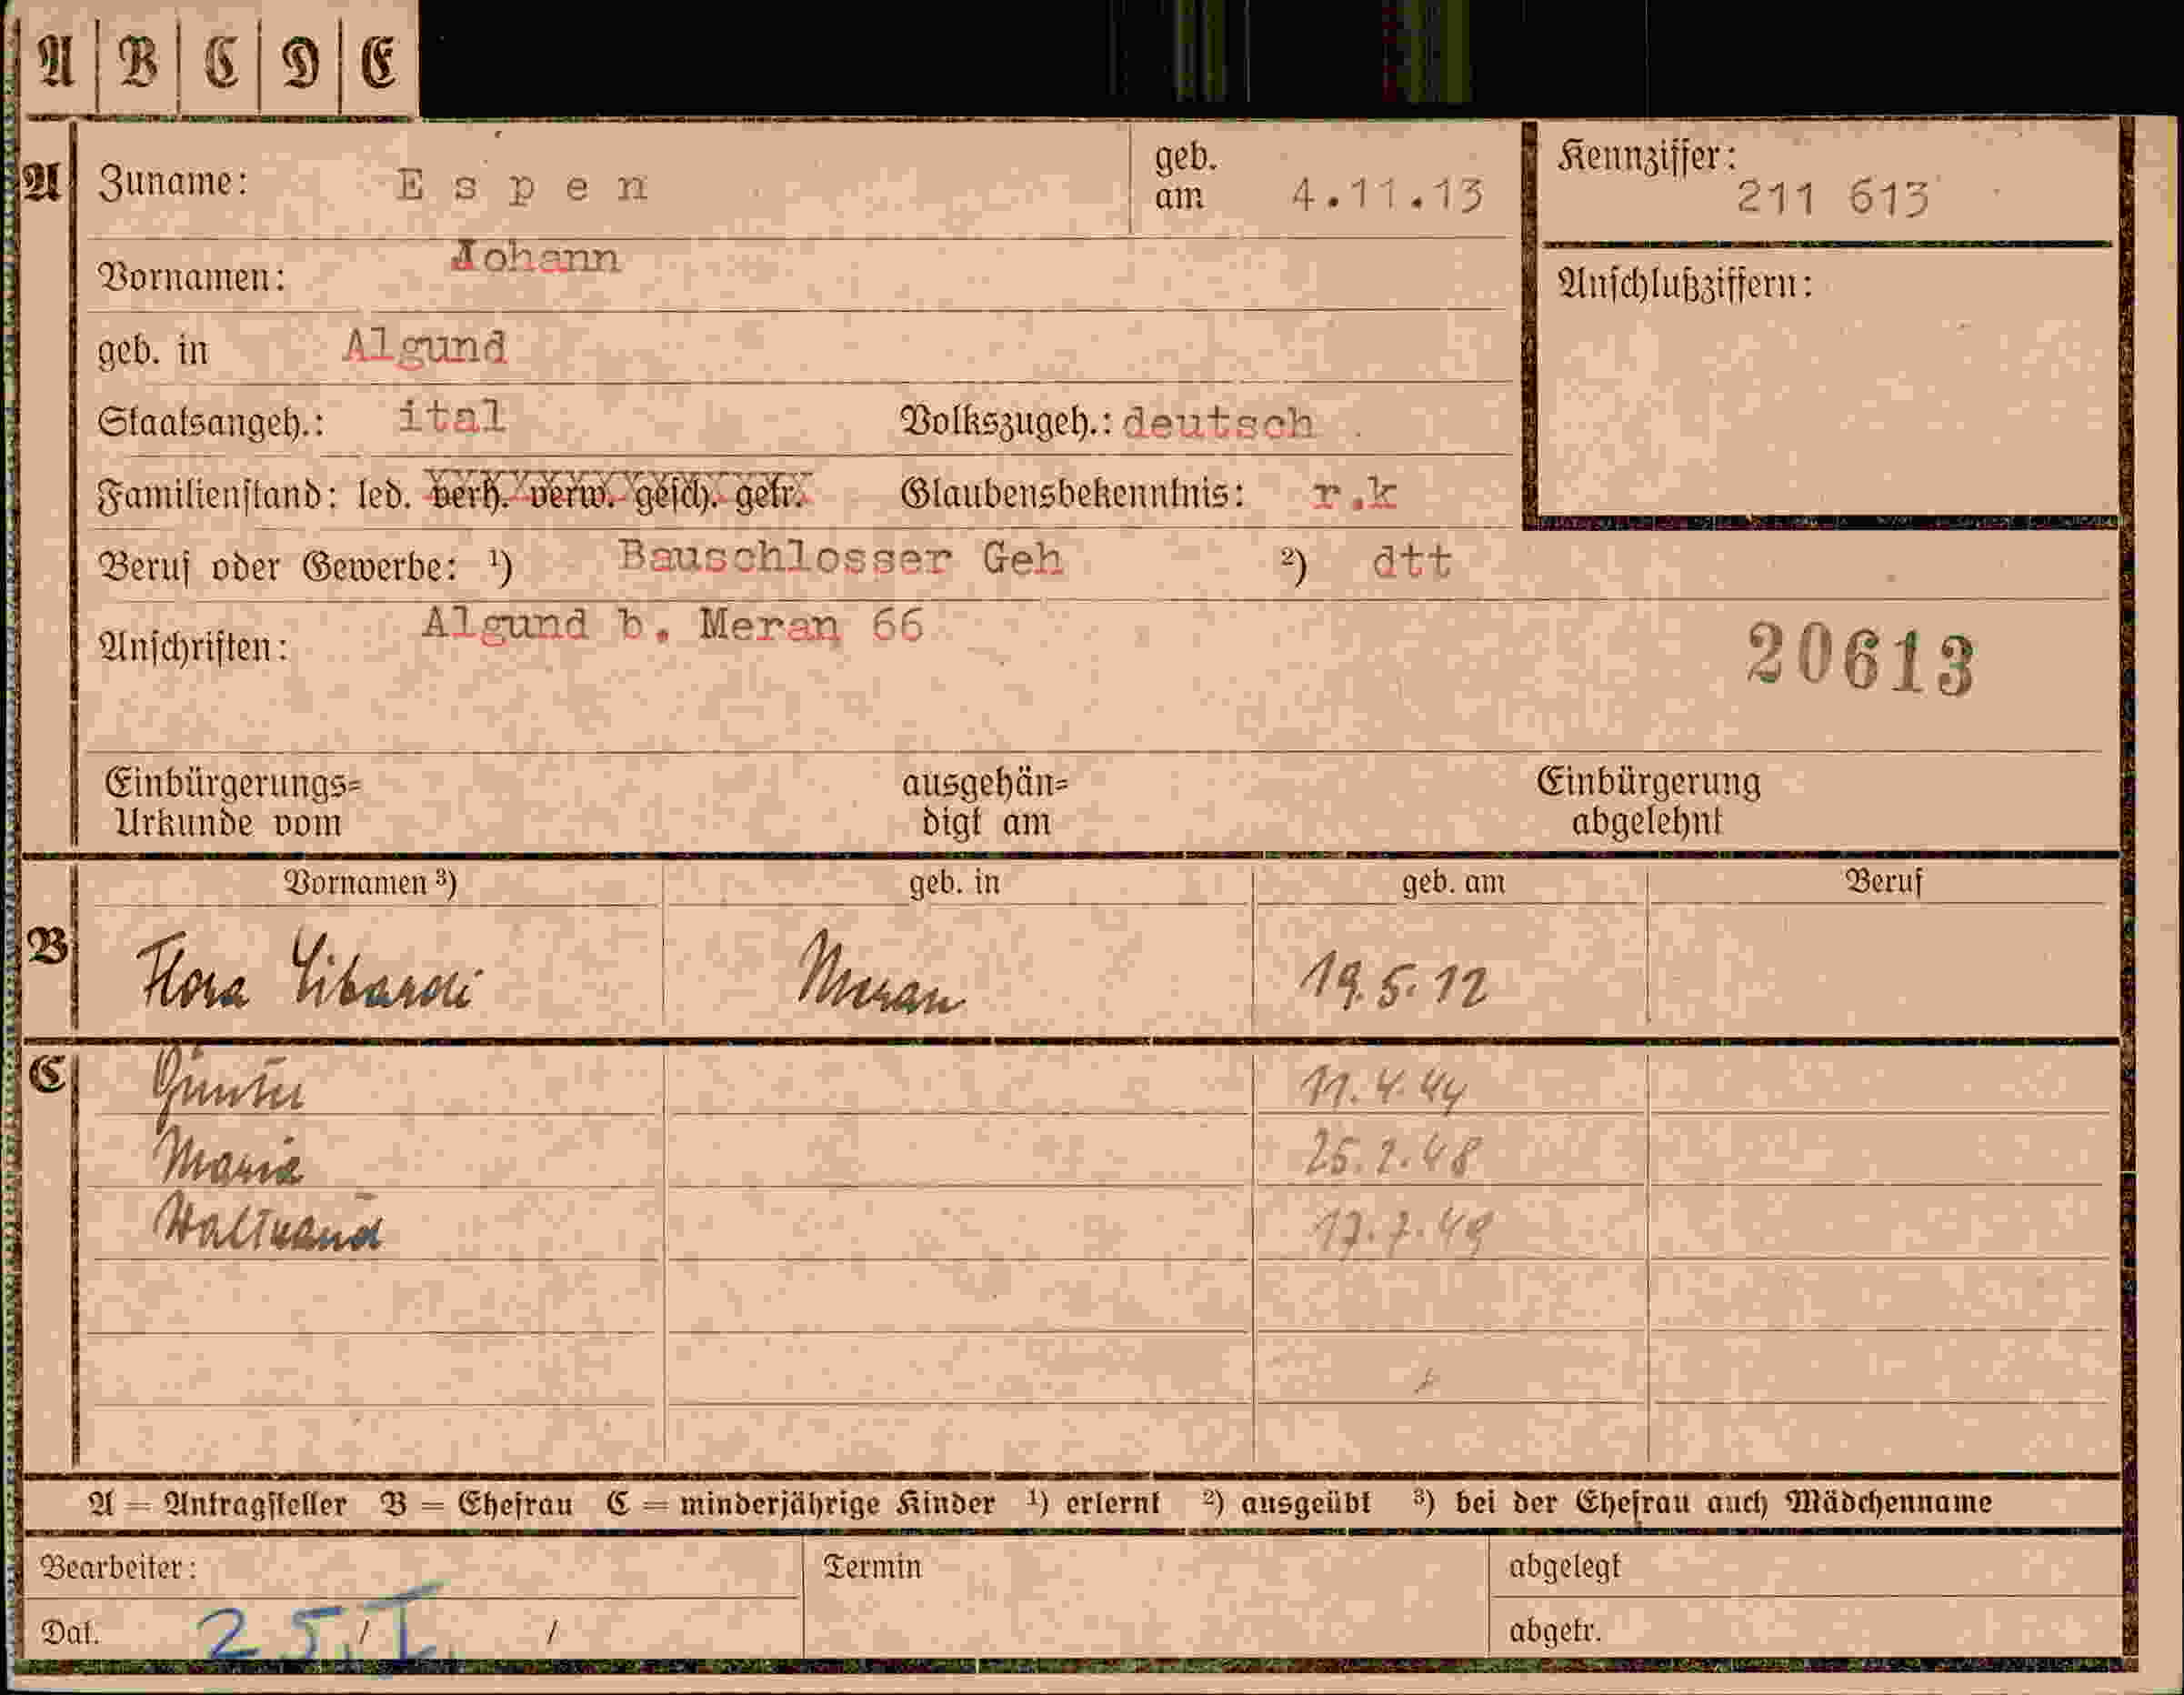 A B C D E
A Zuname: Espen geb. am 4.11.13 Kennziffer: 211 613
Vornamen: Johann Anschlußziffern:
geb. in Algund
Staatsangeh.: ital Volkszugeh.: deutsch
Familienstand: led. verh. verw. gesch. getr. Glaubensbekenntnis: r.k
Beruf oder Gewerbe: ¹) Bauschlosser Geh ²) dtt
Anschriften: Algund b. Meran 66
20613
Einbürgerungs= ausgehän= Einbürgerung
Urkunde vom digt am abgelehnt
Vornamen ³) geb. in geb. am Beruf
B Flora Libardi Meran 19.5.12
C Günter 11.4.44
Maria 25.2.48
Waltraud 17.7.49
A = Antragsteller B = Ehefrau C = minderjährige Kinder ¹) erlernt ²) ausgeübt ³) bei der Ehefrau auch Mädchenname
Bearbeiter: Termin abgelegt
Dat. 25./I. / abgetr.